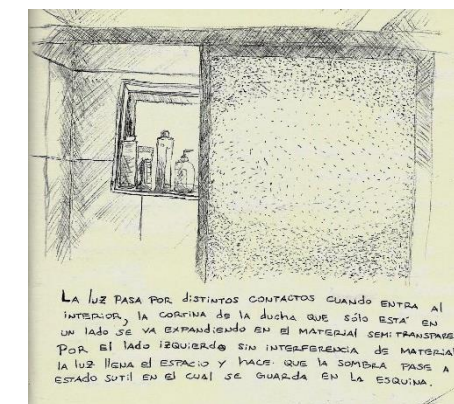 LA luz PASA POR distintos CONTACTOS CUANDO ENTRA Al
INTERIOR, LA CORTINA de la ducha QUE SÓLO ESTÁ EN
UN lADO SE VA EXPANDIENDO EN El MATERIAL SEMI TRANSPARE
POR El lADO IZQUIERDO SIN INTERFERENCIA DE MATERIAL
LA luz llENA El ESPACIO Y HACE QUE lA SOMBRA PASE A
ESTADO SUTIL EN El CUAL SE GUARDA EN LA ESQUINA.